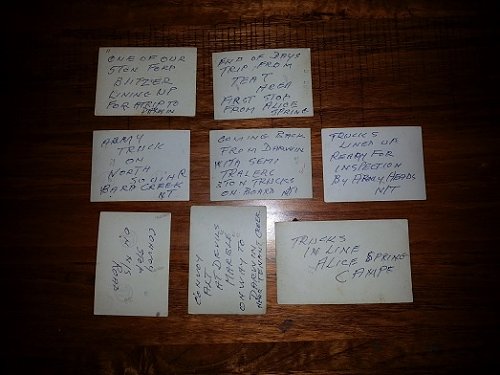 ONE OF OUR
5TON FORD
BLITZER
LINING UP
FOR A TRIP TO
DARWIN
END OF DAYS
TRIP FROM
TENT
AREA
FIRST STOP
FROM ALICE
SPRING
ARMY
TRUCK
ON
NORTH
SOUTH R
BARA CREEK
NT
COMING BACK
FROM DARWIN
WITH SEMI
TRALERS
5TON TRUCKS
ON BOARD NT
TRUCKS
LINED UP
READY FOR
INSPECTION
BY ARMY HEADS
N/T
CONVOY
ON N/S
ROAD
CONVOY
ALT
AT DEVILS
MARBLES
ON WAY TO
DARWIN
NEAR TENANT CREEK
TRUCKS
IN LINE
ALICE SPRING
CAMPE